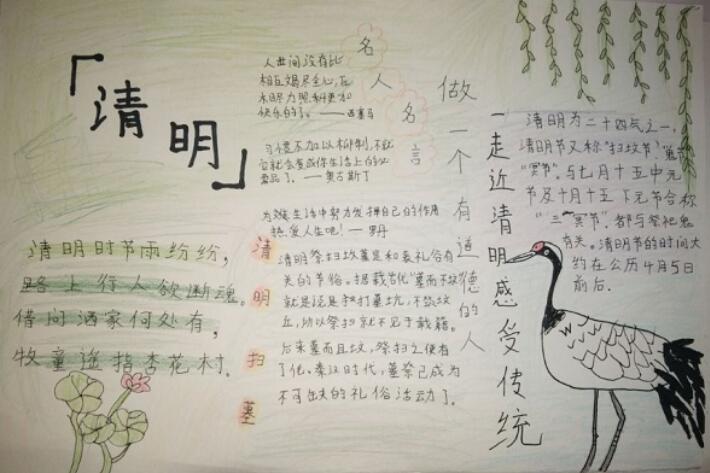 「清明」
清明时节雨纷纷，
路上行人欲断魂。
借问酒家何处有，
牧童遥指杏花村。
名人名言
人世间没有比
相互竭尽全心，互
快乐的了。——西塞马
习惯不加以抑制，不久
它就会变成你生活上的必
需品了。——奥古斯丁
为难生活中努力发挥自己的作用
热爱人生吧！——罗丹
清明扫墓
清明祭扫坟墓是和丧礼俗有
关的节俗。据载古代"墓而不坟"
就是说是扫打墓坑，不筑坟
丘，所以祭扫就不见于载籍。
后来墓而且坟，祭扫之俗便有
了依。秦汉时代，墓祭已成为
不可或缺的礼俗活动了。
做一个有道德的人
一走近清明感受传统
清明为二十四气之一，
清明节又称"扫坟节""鬼节"
"冥节"。与七月十五中元
节及十月十五下元节合称
"三冥节"。都与祭祀鬼
有关。清明节的时间大
约在公历4月5日
前后。